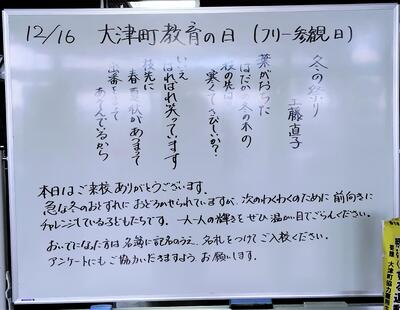 12/16 大津町教育の日 (フリー参観日)
冬の祭り
工藤直子
葉がおちた
はだか 冬の木の
枝の先は
寒くてさびしいか?
いいえ
はればれ笑っています
枝先に
春 夏 秋があつまって
出番をまって
あそんでいるから
本日はご来校ありがとうございます。
急な冬のおとずれにおどろかせられていますが、次のわくわくのために前向きに
チャレンジしている子どもたちです。一人一人の輝きをぜひ温かい目でごらんください。
おいでになった方は名簿に記名のうえ、名札をつけてご入校ください。
アンケートにもご協力いただきますようお願いします。